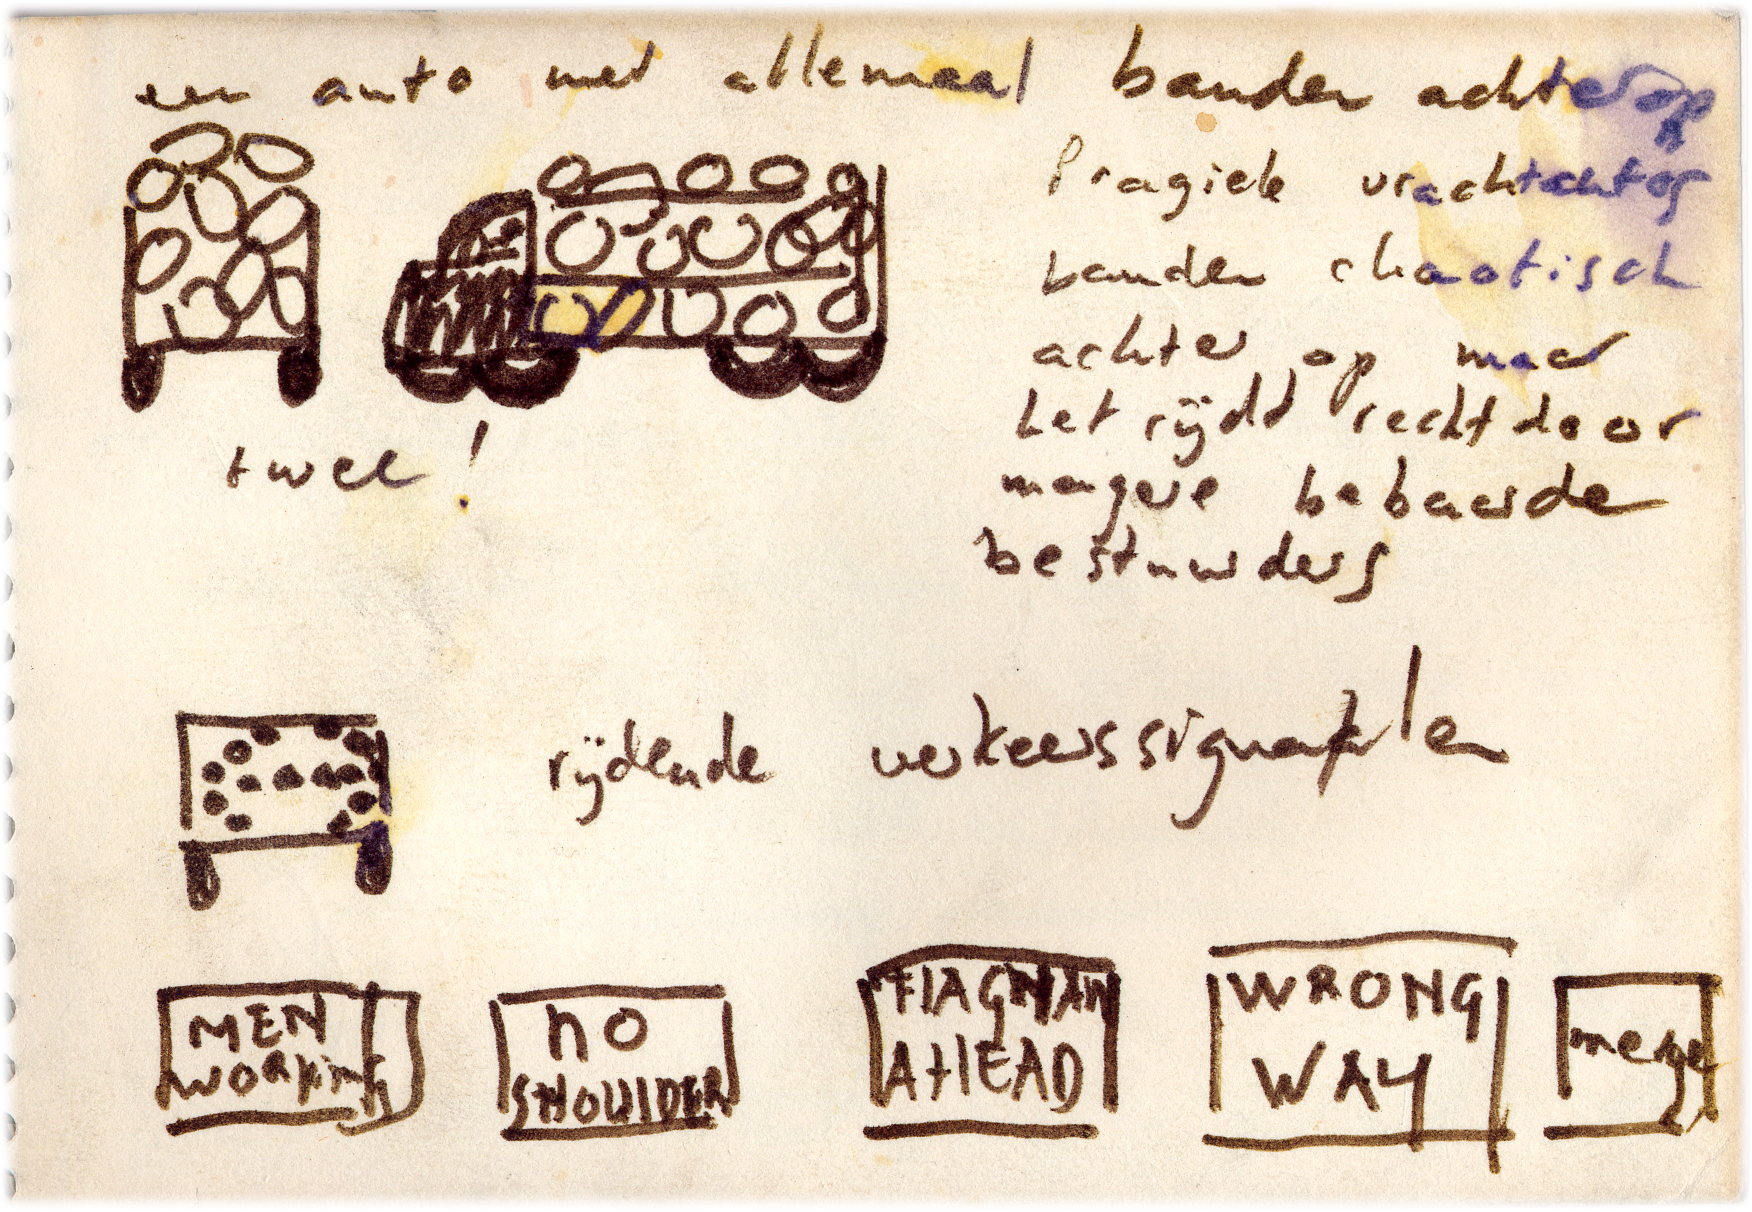 een auto met allemaal banden achterop
fragiele vrachtauto's
banden chaotisch
achter op maar
het rijdt rechtdoor
magere bebaarde
bestuurders
twee!
rijdende verkeerssignalen
MEN
WORKING
NO
SHOULDER
FLAGMAN
AHEAD
WRONG
WAY
merge